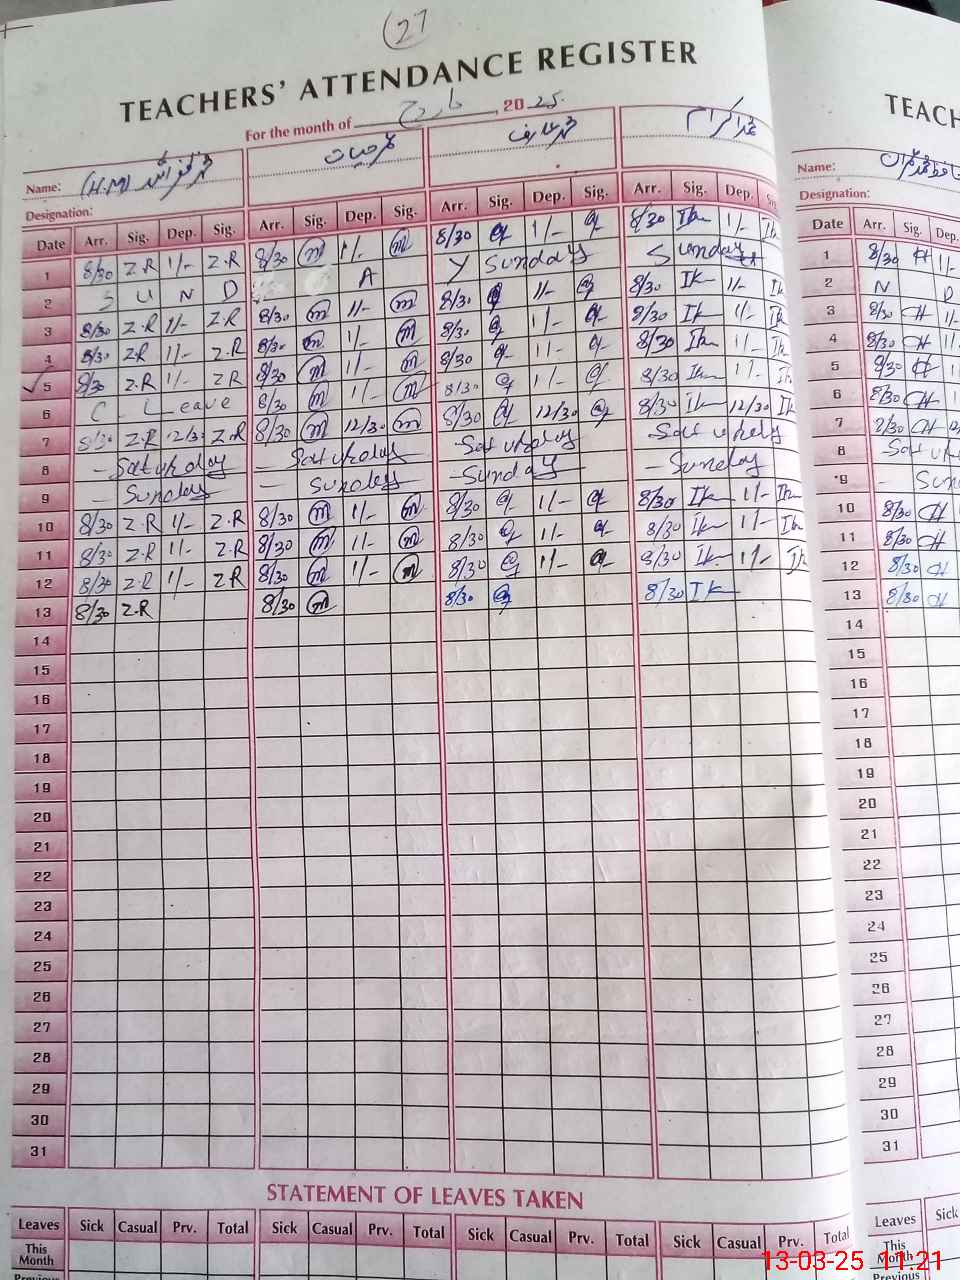 (27
TEACHERS' ATTENDANCE REGISTER
For the month of مارچ, 2025.
Name: (H.M) محمد عارف محمد اکرام
Designation:
Date Arr. Sig. Dep. Sig. Arr. Sig. Dep. Sig. Arr. Sig. Dep. Sig. Arr. Sig. Dep. Sig.
1 8/30 Z.R 1/- Z.R 8/30 m 1/- m 8/30 1/- 8/30 Ik 1/- Ik
2 S U N D A Y Sunday Sunday
3 8/30 Z.R 1/- Z.R 8/30 m 1/- m 8/30 1/- 8/30 Ik 1/- Ik
4 8/30 Z.R 1/- Z.R 8/30 m 1/- m 8/30 1/- 8/30 Ik 1/- Ik
5 8/30 Z.R 1/- Z.R 8/30 m 1/- m 8/30 1/- 8/30 Ik 1/- Ik
6 C. Leave 8/30 m 1/- m 8/30 1/- 8/30 Ik 1/- Ik
7 8/30 Z.R 12/30 Z.R 8/30 m 12/30 m 8/30 12/30 8/30 Ik 12/30 Ik
8 – Saturday – Saturday – Saturday Saturday
9 – Sunday – Sunday – Sunday – Sunday
10 8/30 Z.R 1/- Z.R 8/30 m 1/- m 8/30 1/- 8/30 Ik 1/- Ik
11 8/30 Z.R 1/- Z.R 8/30 m 1/- m 8/30 1/- 8/30 Ik 1/- Ik
12 8/30 Z.R 1/- Z.R 8/30 m 1/- m 8/30 1/- 8/30 Ik 1/- Ik
13 8/30 Z.R 8/30 m 8/30 8/30 Ik
14
15
16
17
18
19
20
21
22
23
24
25
26
27
28
29
30
31
STATEMENT OF LEAVES TAKEN
Leaves Sick Casual Prv. Total Sick Casual Prv. Total Sick Casual Prv. Total Sick Casual Prv. Total
This Month
Previous
TEACH
Name:
Designation:
Date Arr. Sig. Dep.
1 8/30 H 1/-
2 N D
3 8/30 H 1/-
4 8/30 H 1/-
5 8/30 H 1/-
6 8/30 H 1/-
7 8/30 H
8 Satur
9 – Sun
10 8/30 H
11 8/30 H
12 8/30 H
13 8/30 H
14
15
16
17
18
19
20
21
22
23
24
25
26
27
28
29
30
31
Leaves Sick
This Month
Previous
13-03-25 11:21